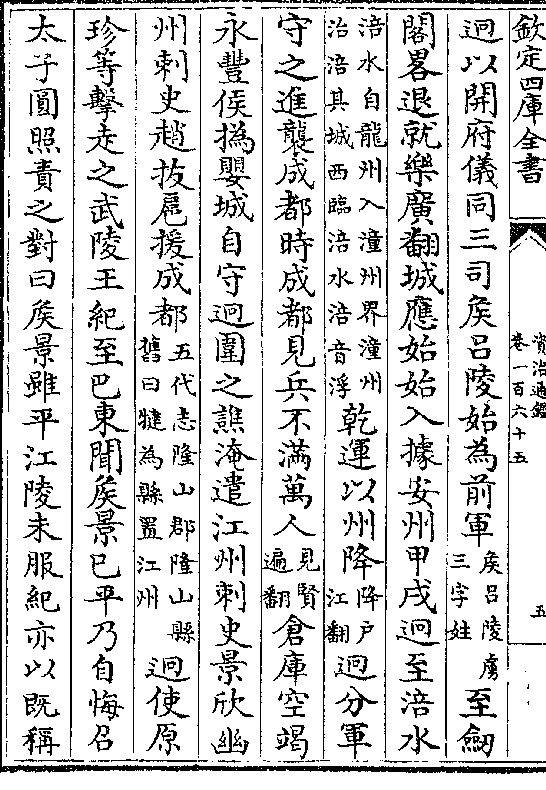 欽定四庫全書
資治通鑑
卷一百六十五
五
迥以開府儀同三司矦吕陵始為前軍矦吕陵虜三字姓至劔
閣畧退就樂廣翻城應始始入據安州甲戌迥至涪水
涪水自龍州入潼州界潼州治涪其城西臨涪水涪音浮乾運以州降降戸江翻迥分軍
守之進襲成都時成都見兵不滿萬人見賢遍翻倉庫空竭
永豐侯撝嬰城自守迥圍之譙淹遣江州刺史景欣幽
州刺史趙抜扈援成都五代志隆山郡隆山縣舊曰犍為縣置江州迥使原
珍等擊走之武陵王紀至巴東聞矦景已平乃自悔召
太子圓照責之對曰矦景雖平江陵未服紀亦以既稱